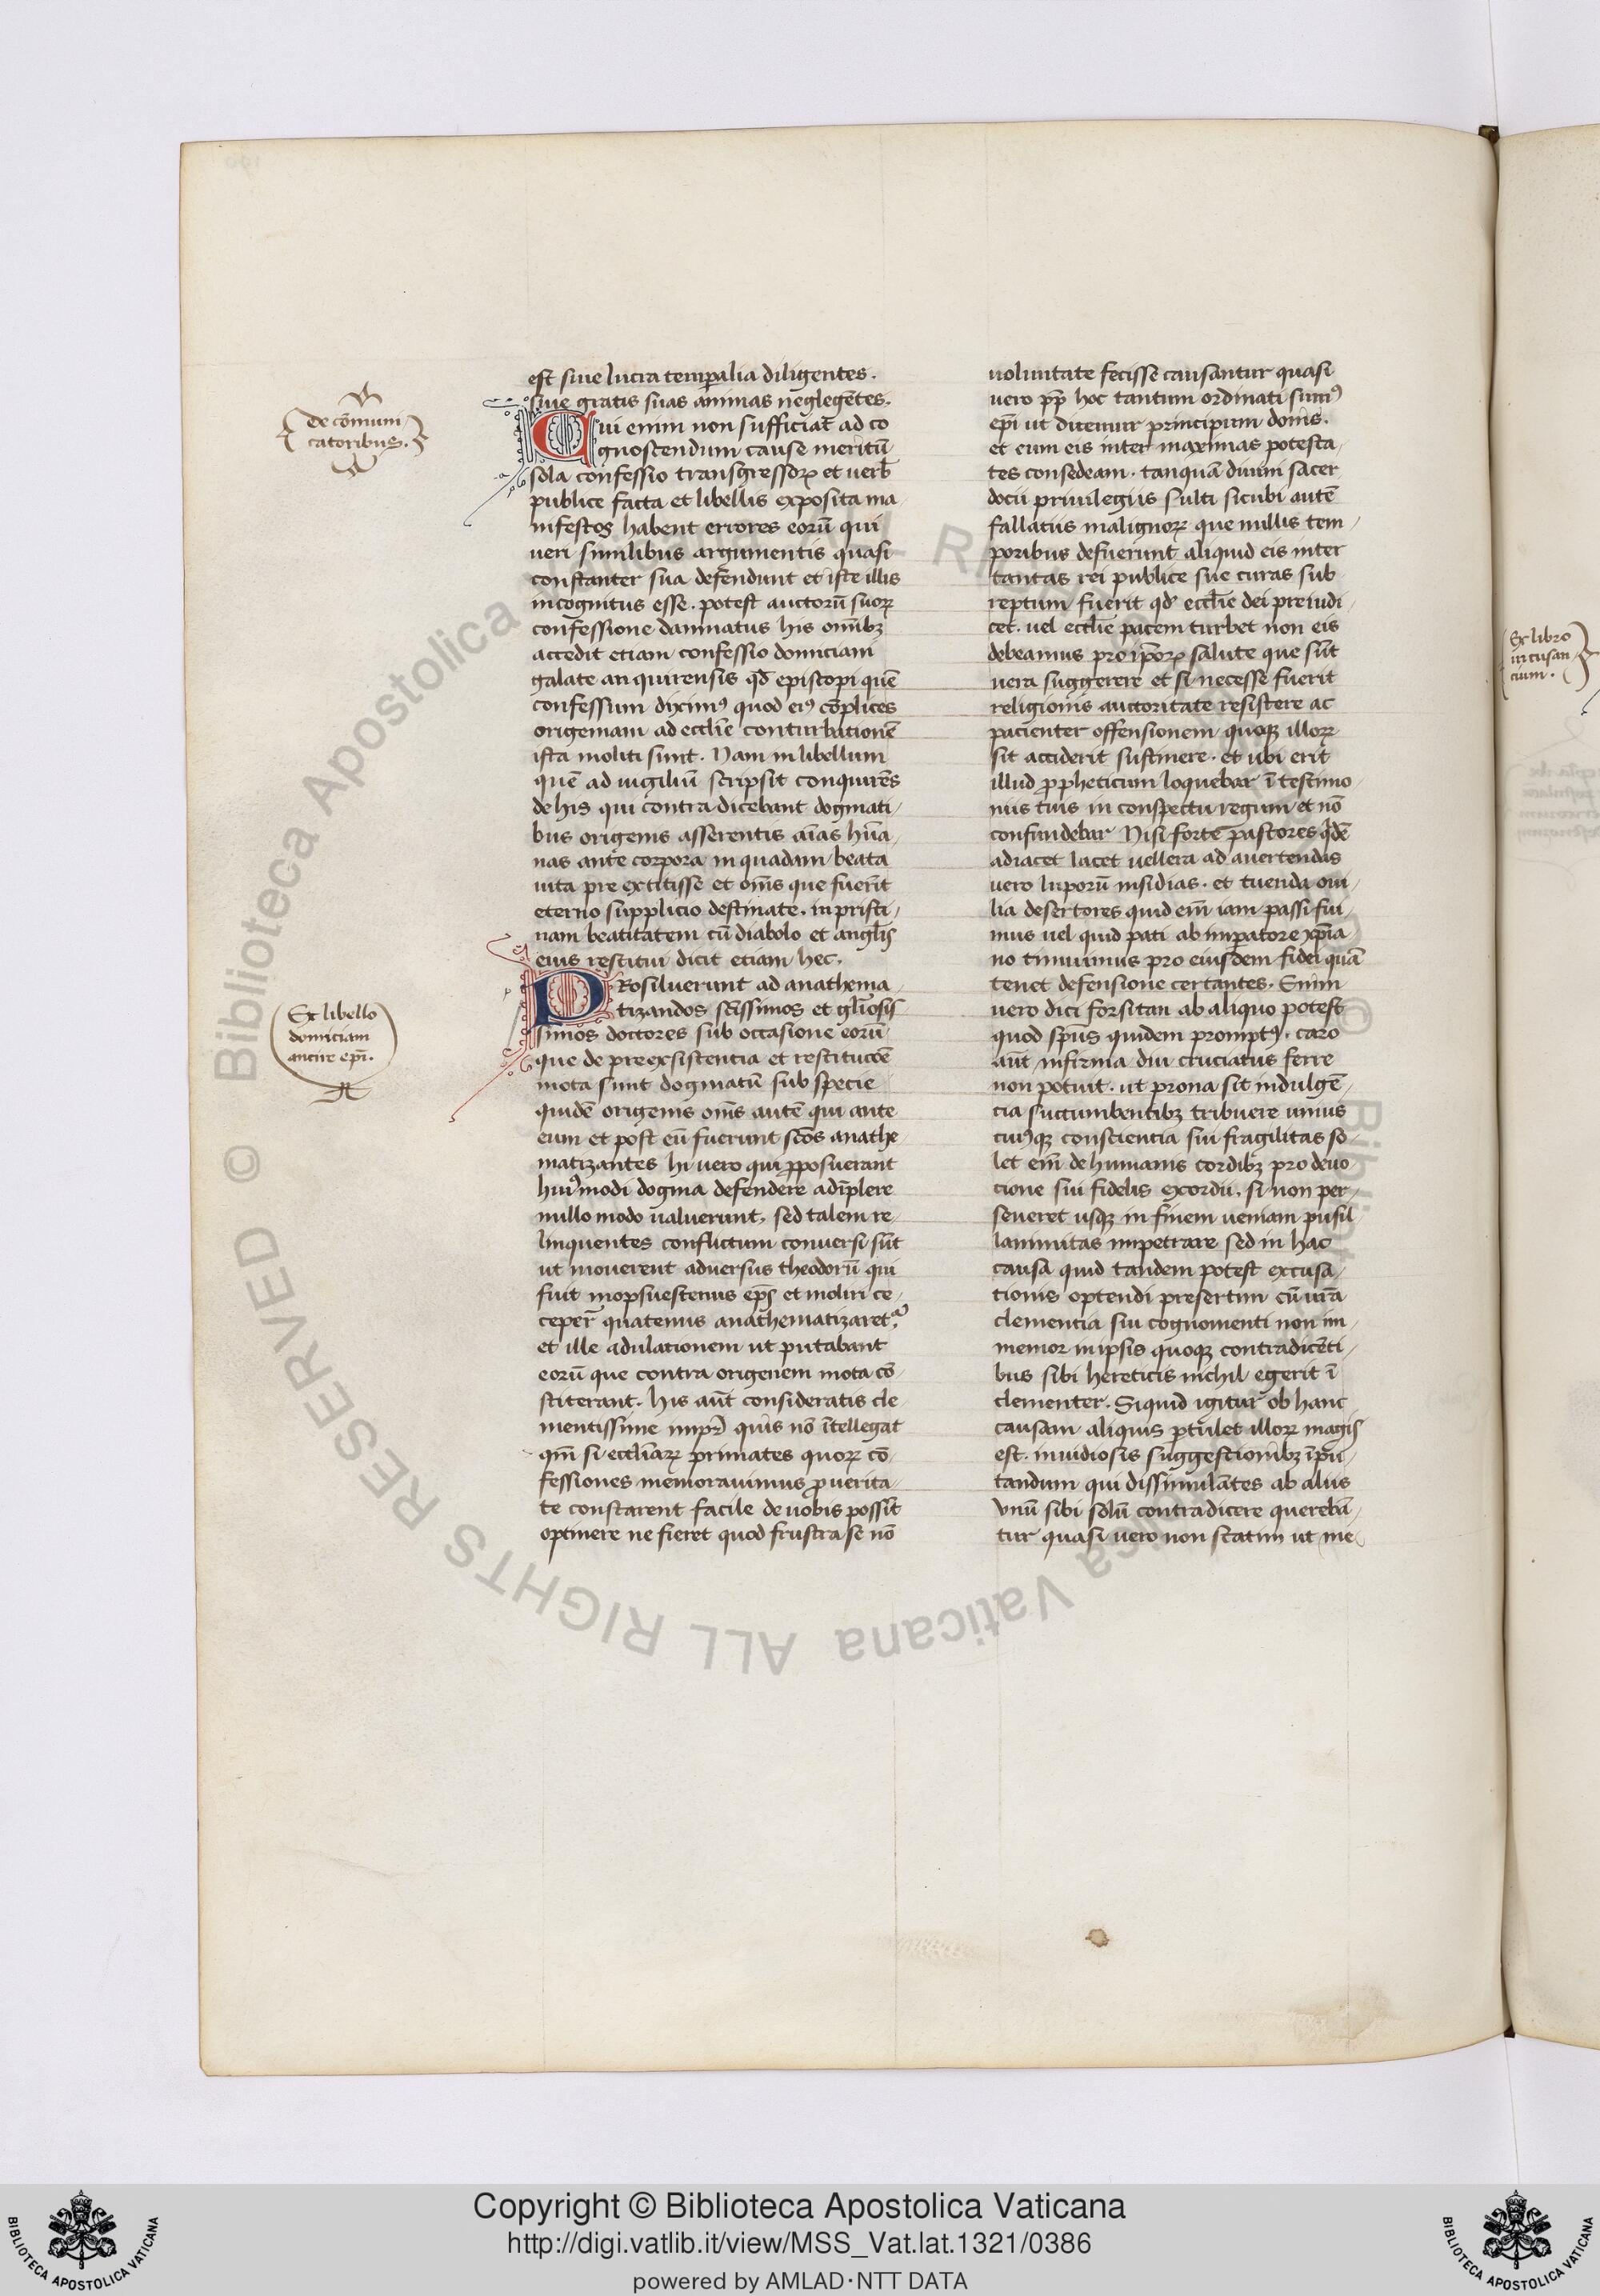 de cōmuni
catoribus.
est siue lucra temporalia diligentes.
siue gratis suas animas neglegētes.
Cui enim non sufficiat ad co
gnoscendum cause meritū
sola confessio transgressorꝝ et uerb̄
publice facta et libellis exposita ma
nifestos habent errores eorū qui
ueri similibus argumentis quasi
constanter sua defendunt et iste illis
incognitus esse. potest auctorū suorꝝ
confessione damnatus his omībꝫ
accedit etiam confessio domiciani
galate anquirensis qd̄ episcopi quē
confessum diximꝰ quod eiꝰ cōplices
origeniani ad eccłie conturbationē
ista moliti sunt. Nam in libellum
quē ad uigiliū scripsit conquirēs
de his qui contra dicebant dogmati
bus origenis asserentis aīas hūa
nas ante corpora in quadam beata
uita pre extitisse et oms̄ que fuerīt
eterno supplicio destinate. in pristi
nam beatitatem cū diabolo et angłis
eius restitui dicit etiam hec.
Ex libello
domiciani
ancire epī.
PRosiluerunt ad anathema
tizandos sc̄issimos et gl̄iosis
simos doctores sub occasione eorū
que de preexsistentia et restitucōe
mota sunt dogmatū sub specie
quidē origenis oms̄ autē qui ante
eum et post eū fuerunt scōs anathe
matizantes hi uero qui ꝓposuerant
huiꝰmodi dogma defendere adīplere
nullo modo ualuerunt. sed talem re
linquentes conflictum conuersi sūt
ut mouerent aduersus theodorū qui
fuit mopsuestenus ep̄s et moliri ce
ceper̄ quatenus anathematizaretᷣ.
et ille adulationem ut putabant
eorū que contra origenem mota cō
stiterant. his aūt consideratis cle
mentissime impr̄ quis nō ītellegat
qm̄ si eccłiarꝝ primates quorꝝ cō
fessiones memorauimus ꝓ uerita
te constarent facile de uobis possīt
optinere ne fieret quod frustra se nō
uoluntate fecisse causantur quasi
uero pp̄ hoc tantum ordinati simꝰ
epī ut ditemur principum donis.
et cum eis inter maximas potesta
tes consedeam. tanquā diuini sacer
docii priuilegiis fulti sicubi autē
fallatiis malignorꝝ que nullis tem
poribus defuerunt aliquid eis inter
tantas rei publice sue curas sub
reptum fuerit qd̄ eccłie dei preiudi
cet. uel eccłie pacem turbet non eis
debeamus pro ip̄orꝝ salute que sūt
uera suggerere et si necesse fuerit
religionis auctoritate resistere ac
pacienter offensionem quoqꝫ illorꝝ
sit acciderit sustinere. et ubi erit
illud ꝓpheticum loquebar ī testimo
niis tuis in conspectu regum et nō
confundebar Nisi forte pastores qdē
adiacet lacet uellera ad auertendas
uero luporū insidias. et tuenda oui
lia desertores quid em̄ iam passi fui
mus uel quid pati ab imperatore xp̄ia
no timuimus pro eiusdem fidei quā
tenet defensione certantes. Enim
uero dici forsitan ab aliquo potest
quod sp̄us quidem promptꝰ. caro
aūt infirma diu cruciatus ferre
non potuit. ut prona sit indulgē
cia succumbentibꝫ tribuere unius
cuiꝰqꝫ conscientia sui fragilitas so
let em̄ de humanis cordibꝫ pro deuo
cione sui fidelis exordii. si non per
seueret usqꝫ in finem ueniam pusil
lanimitas impetrare sed in hac
causa quid tandem potest excusa
tionis optendi presertim cū ur̄a
clementia sui cognomenti non im
memor in ipsis quoqꝫ contradicēti
bus sibi hereticis nichil egerit ī
clementer. Siquid igitur ob hanc
causam aliquis ꝑtulet illorꝝ magis
est. inuidiosis suggestionibꝫ īpu
tandum qui dissimulātes ab aliis
Vnū sibi solū contradicere querebā
tur quasi uero non statim ut me
Ex libro
in cusan
cium.
© Biblioteca Apostolica Vaticana ALL RIGHTS RESERVED
Copyright © Biblioteca Apostolica Vaticana
http://digi.vatlib.it/view/MSS_Vat.lat.1321/0386
powered by AMLAD·NTT DATA
BIBLIOTECA APOSTOLICA VATICANA
BIBLIOTECA APOSTOLICA VATICANA